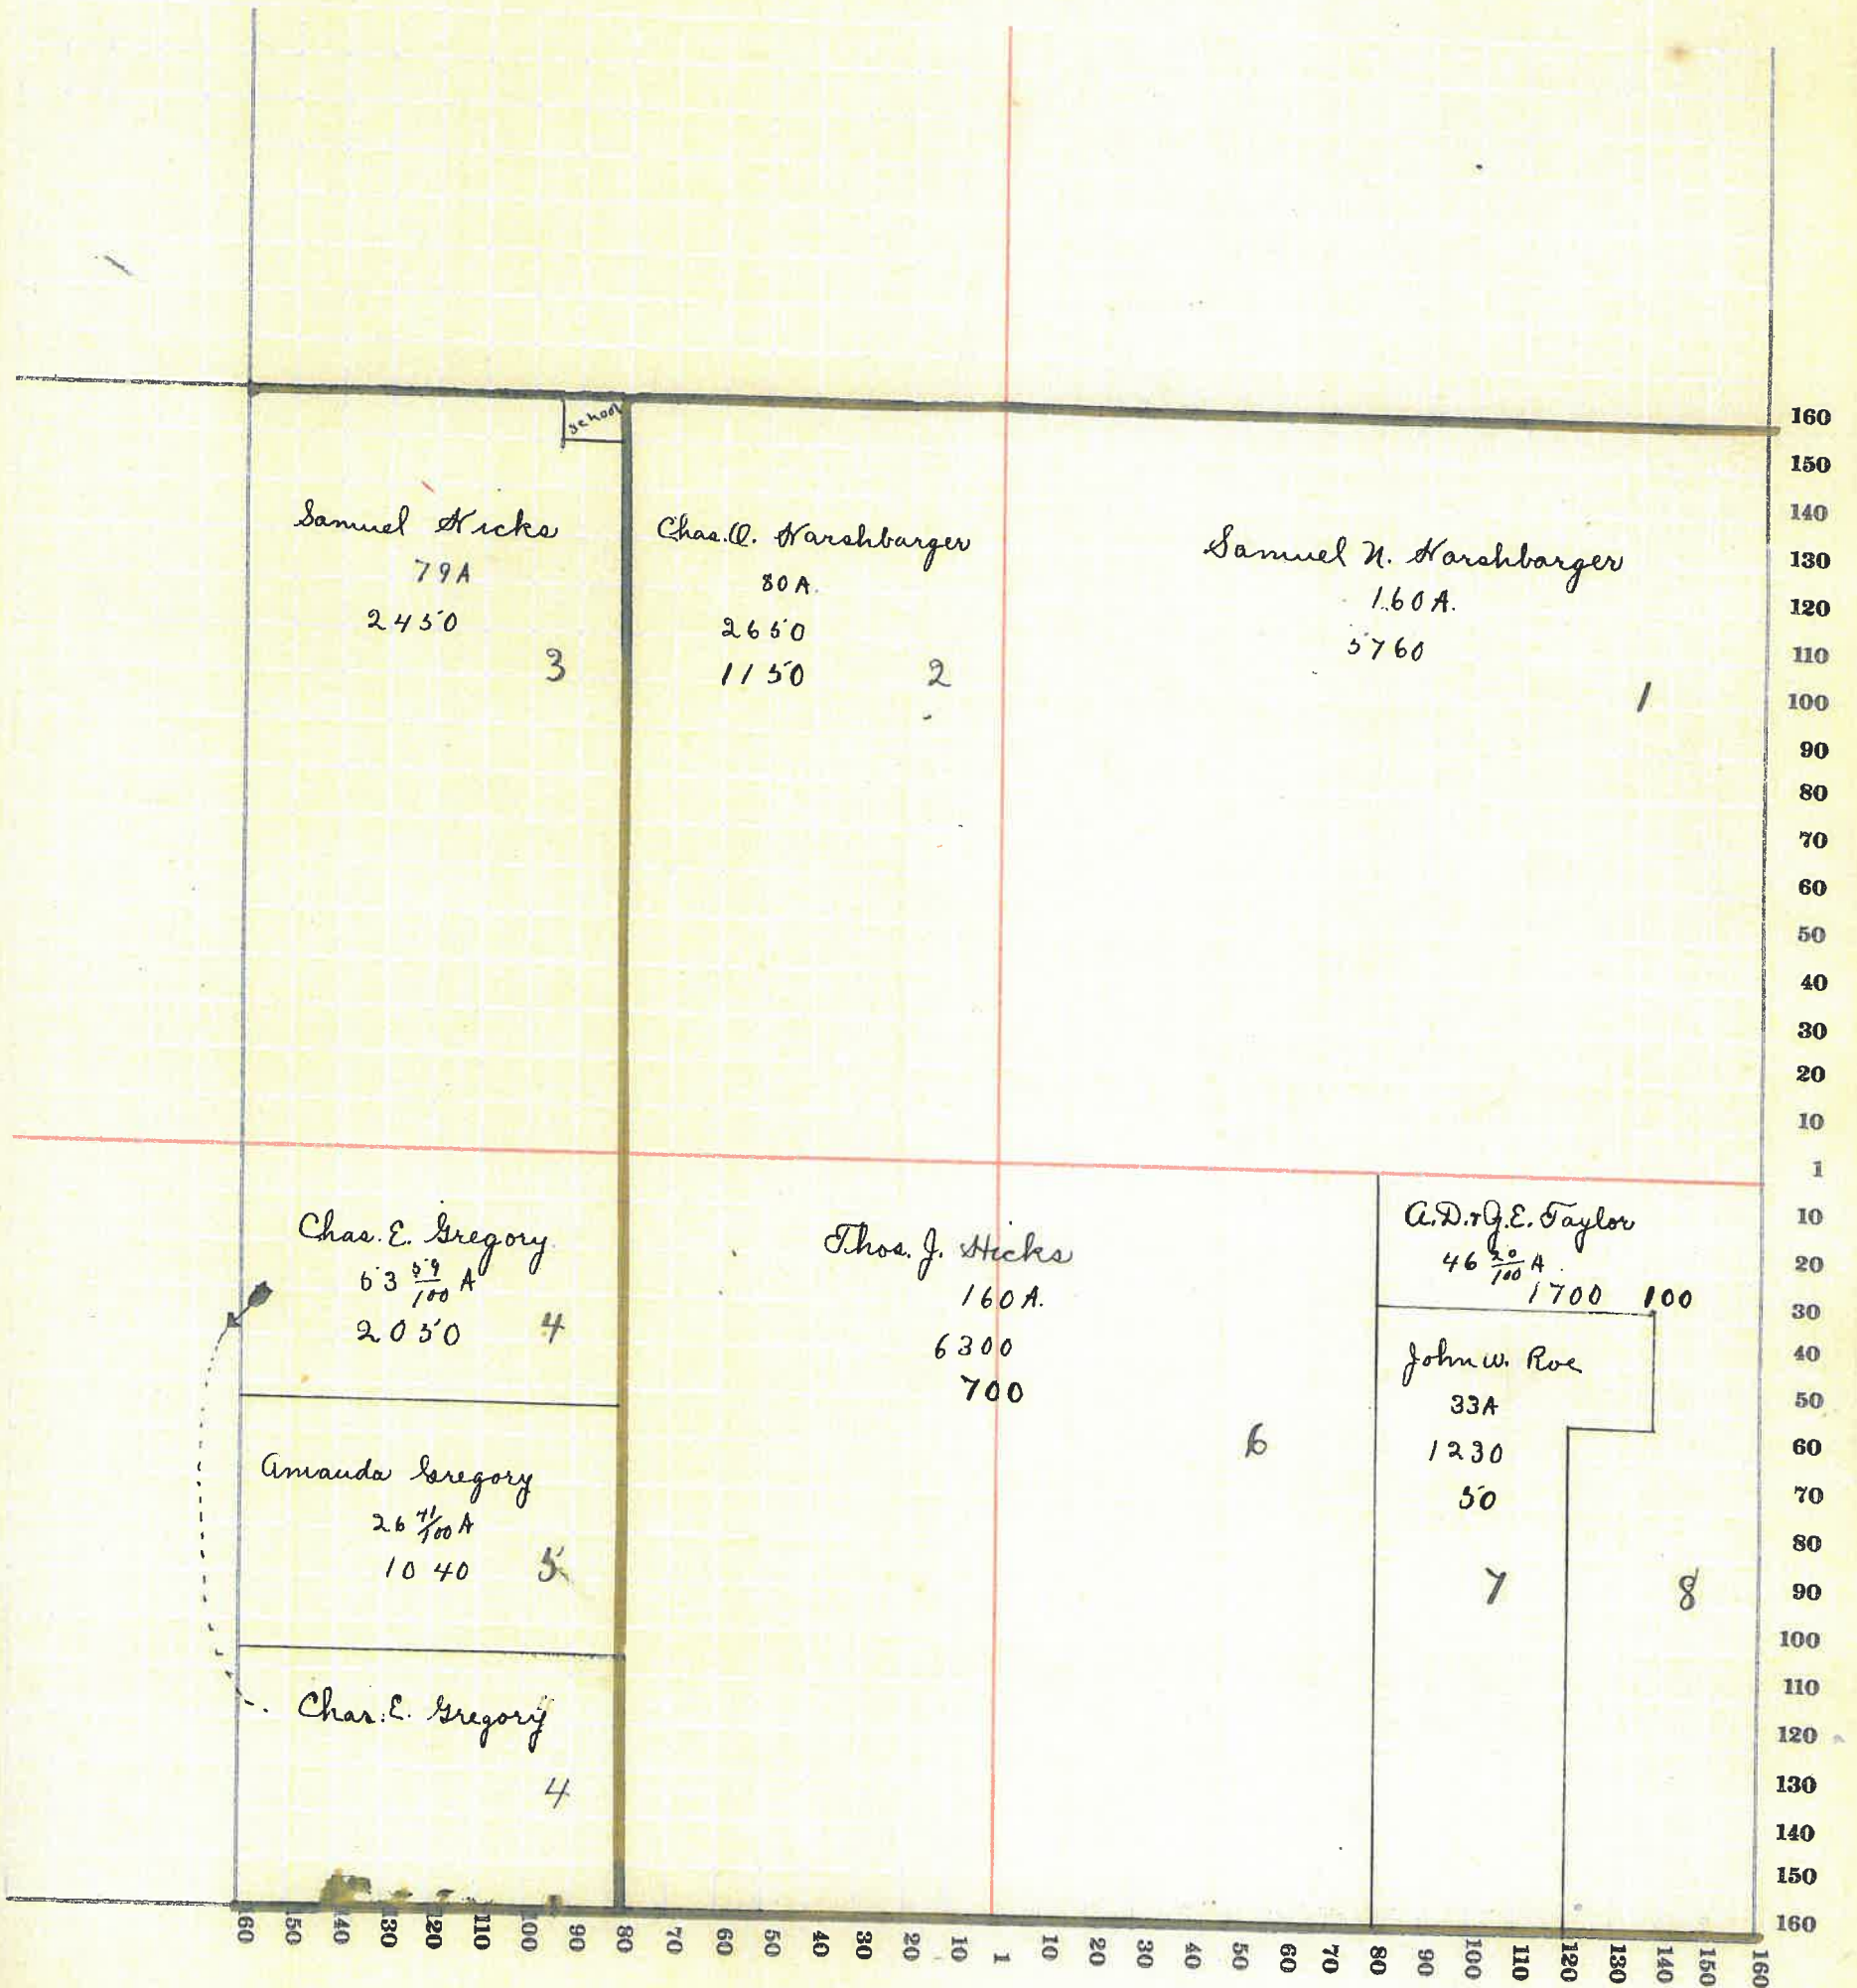 school
Samuel Hicks
79A
2450
3
Chas. O. Harshbarger
80 A.
2650
1150
2
Samuel N. Harshbarger
160 A.
5760
1
Chas. E. Gregory
53 59/100 A
2050
4
Amanda Gregory
26 41/100 A
1040
5
Chas. E. Gregory
4
Thos. J. Hicks
160 A.
6300
700
6
A.D. & G.E. Taylor
46 20/100 A.
1700 100
John W. Roe
33A
1230
50
7
8
160
150
140
130
120
110
100
90
80
70
60
50
40
30
20
10
1
10
20
30
40
50
60
70
80
90
100
110
120
130
140
150
160
160 150 140 130 120 110 100 90 80 70 60 50 40 30 20 10 1 10 20 30 40 50 60 70 80 90 100 110 120 130 140 150 160